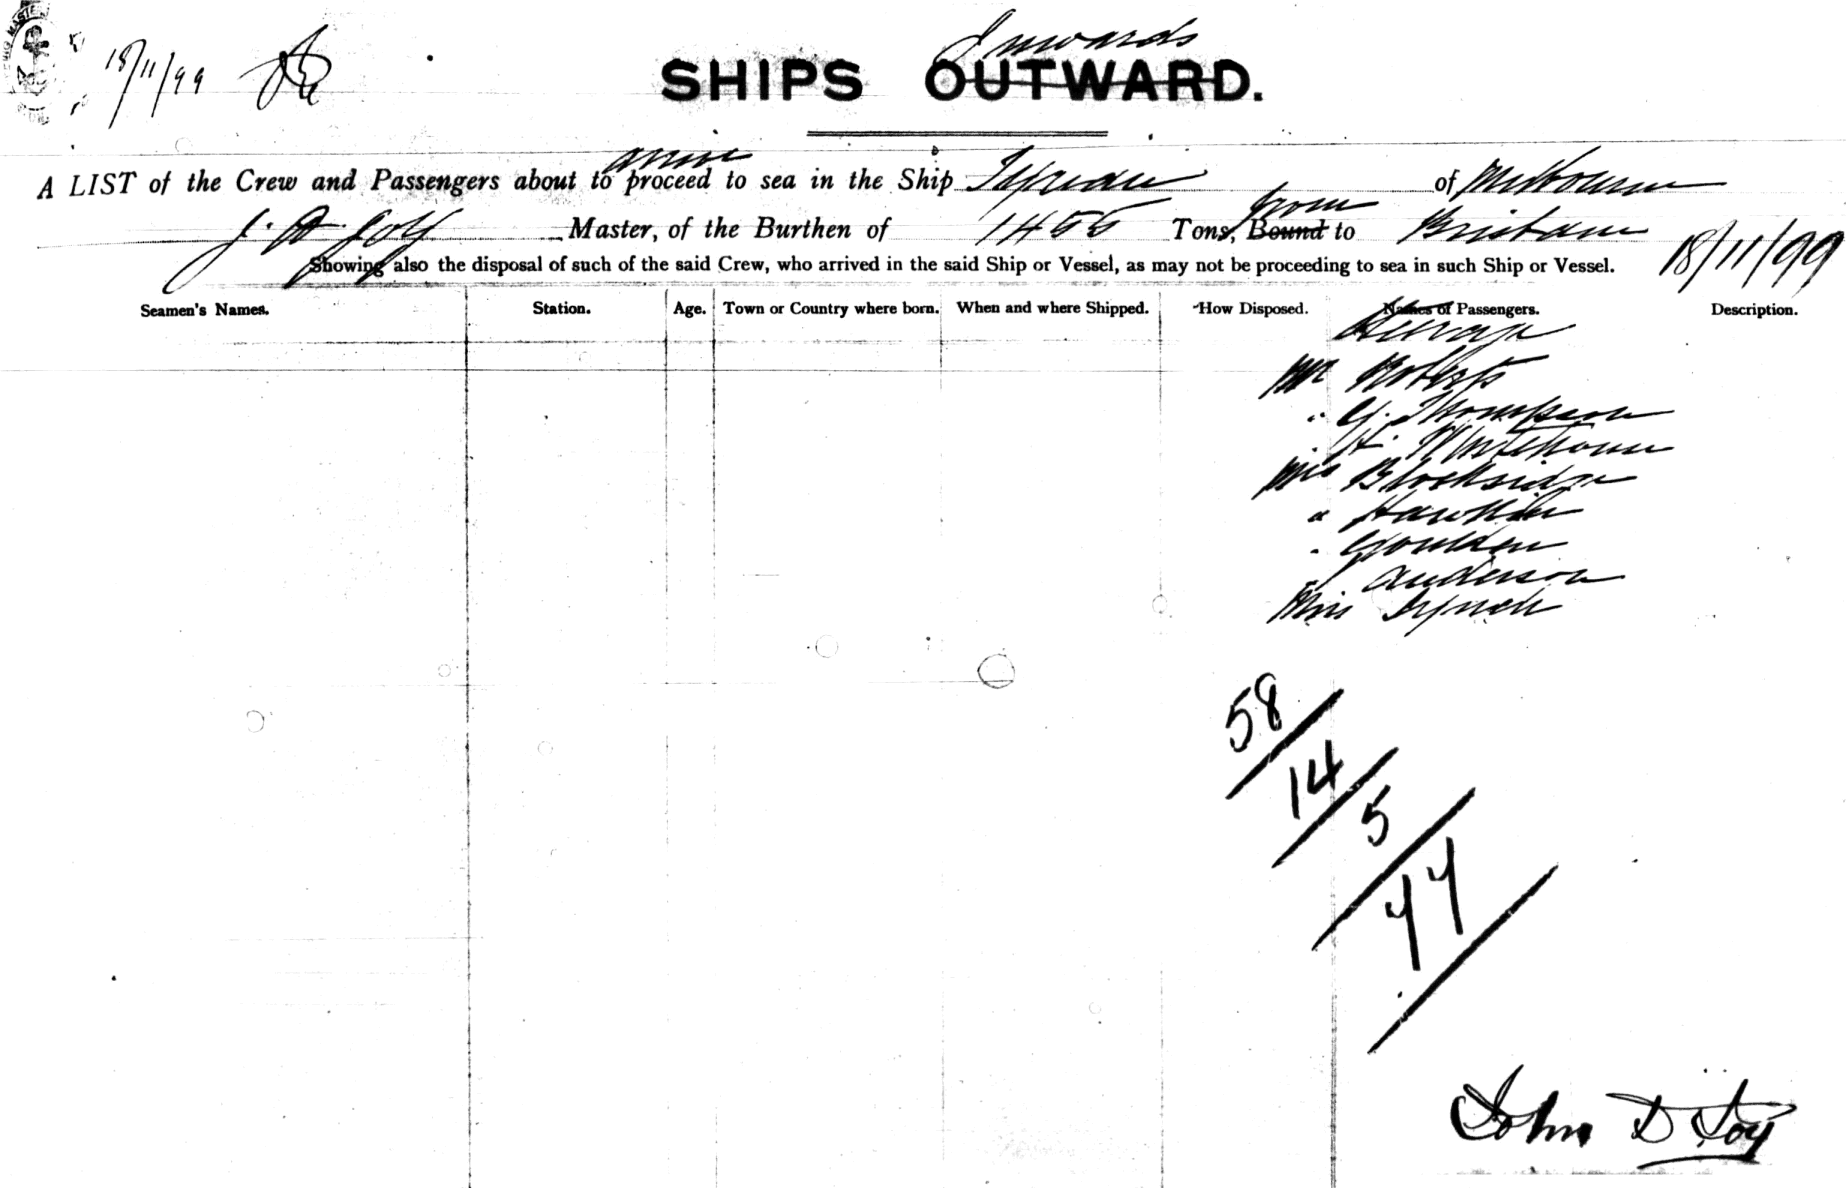 18/11/99
Inwards
SHIPS OUTWARD.
arrive
A LIST of the Crew and Passengers about to proceed to sea in the Ship Tyrian of Melbourne
from
J. D. Joy Master, of the Burthen of 1455 Tons, Bound to Brisbane 18/11/99
Showing also the disposal of such of the said Crew, who arrived in the said Ship or Vessel, as may not be proceeding to sea in such Ship or Vessel.
Seamen's Names. Station. Age. Town or Country where born. When and where Shipped. How Disposed. Names of Passengers. Description.
Steerage
Mr Roberts
" G. Thompson
" H. Whitehouse
Mrs Blocksidge
" Hawkins
" Goulden
Anderson
Miss Lynch
58
14
5
77
John D Joy